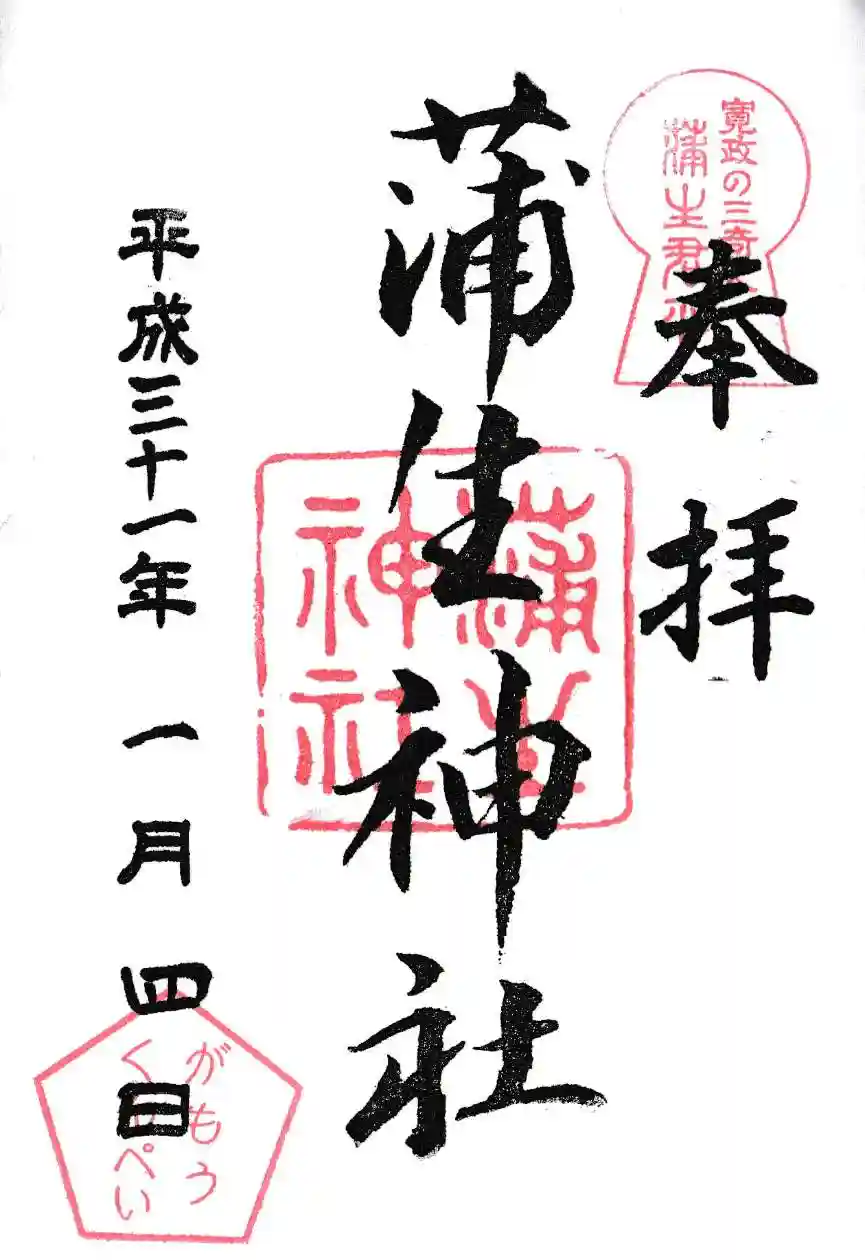 寛政の三奇人
蒲生君平
奉拝
蒲生神社
蒲生
神社
平成三十一年 一月 四日
がもう
くんぺい